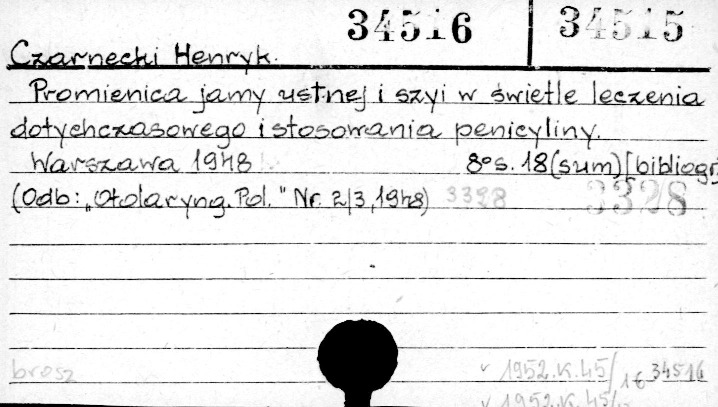 34516 34515
Czarnecki Henryk.
Promienica jamy ustnej i szyi w świetle leczenia
dotychczasowego i stosowania penicyliny.
Warszawa 1948 8°s. 18(sum)[bibliogr
(Odb: „Otolaryng. Pol." Nr. 2/3, 1948) 3328 3328
brosz v 1952.K.45/16 34516
v 1952.K.45/